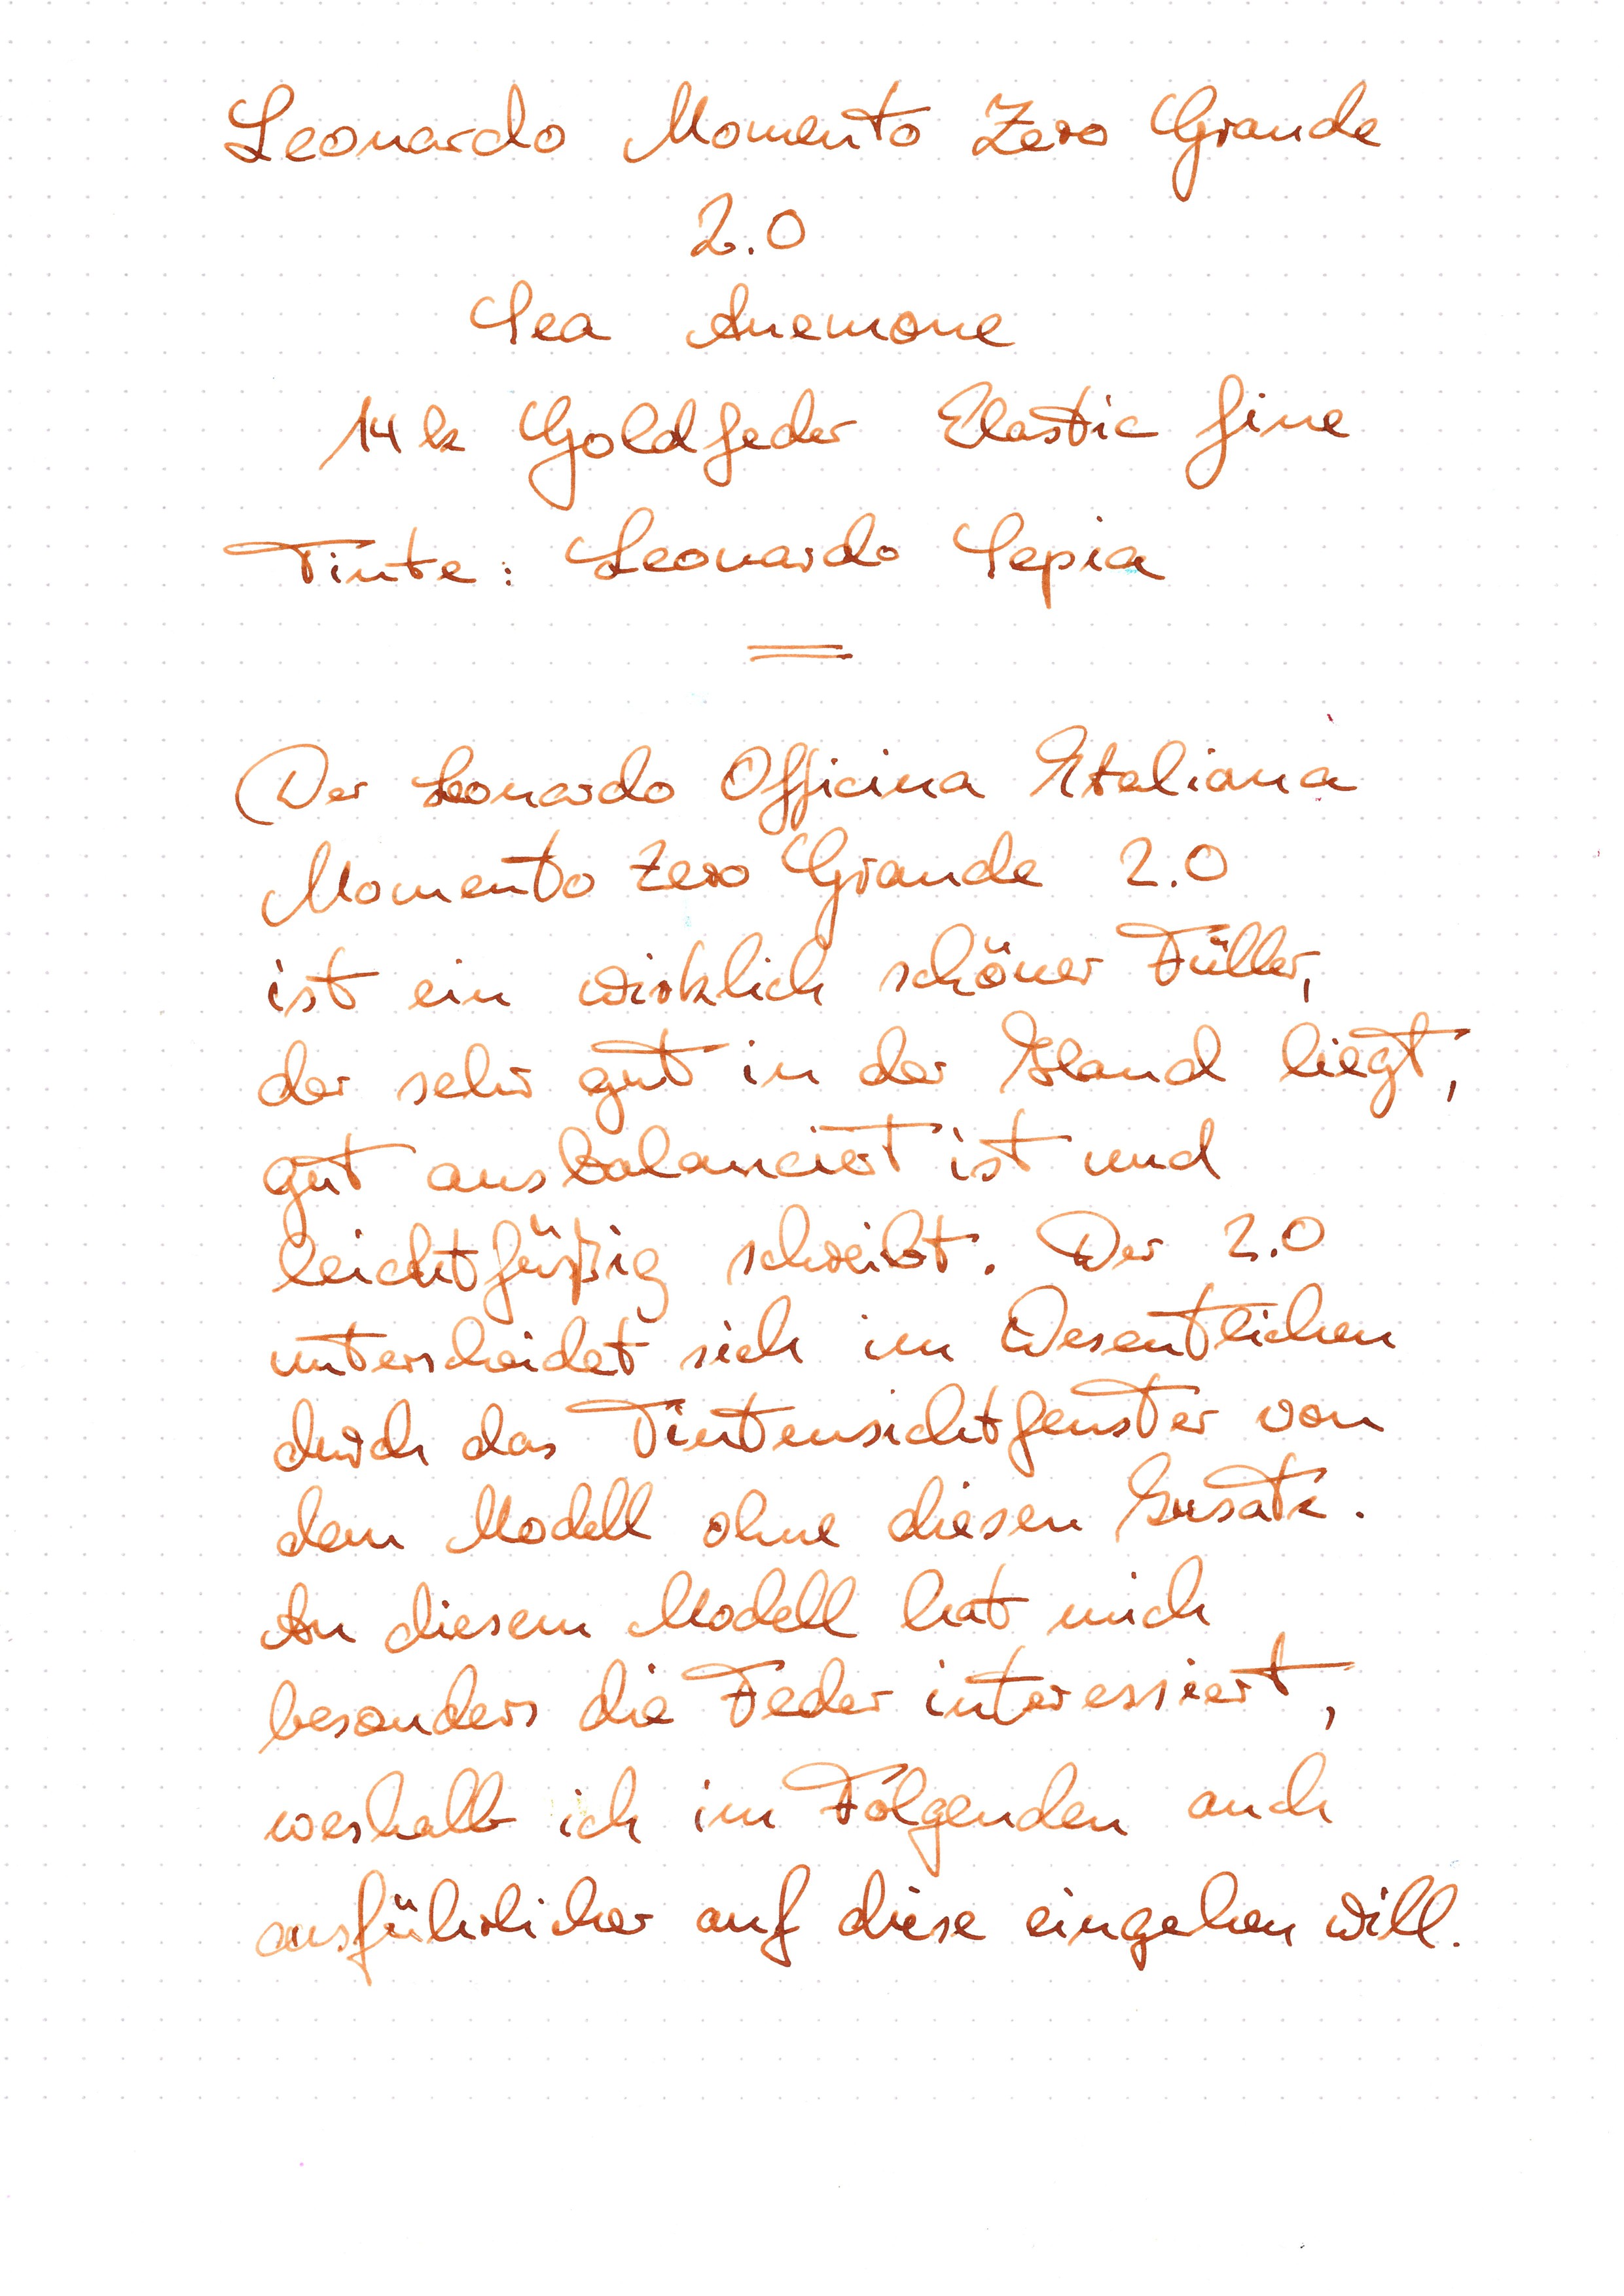 Leonardo Momento Zero Grande
2.0
Sea Anemone
14k Goldfeder Elastic fine
Tinte: Leonardo Sepia
Der Leonardo Officina Italiana
Momento Zero Grande 2.0
ist ein wirklich schöner Füller,
der sehr gut in der Hand liegt,
gut ausbalanciert ist und
leichtfüßig schreibt. Der 2.0
unterscheidet sich im Wesentlichen
durch das Tintensichtfenster von
dem Modell ohne diesen Zusatz.
An diesem Modell hat mich
besonders die Feder interessiert,
weshalb ich im Folgenden auch
ausführlicher auf diese eingehen will.